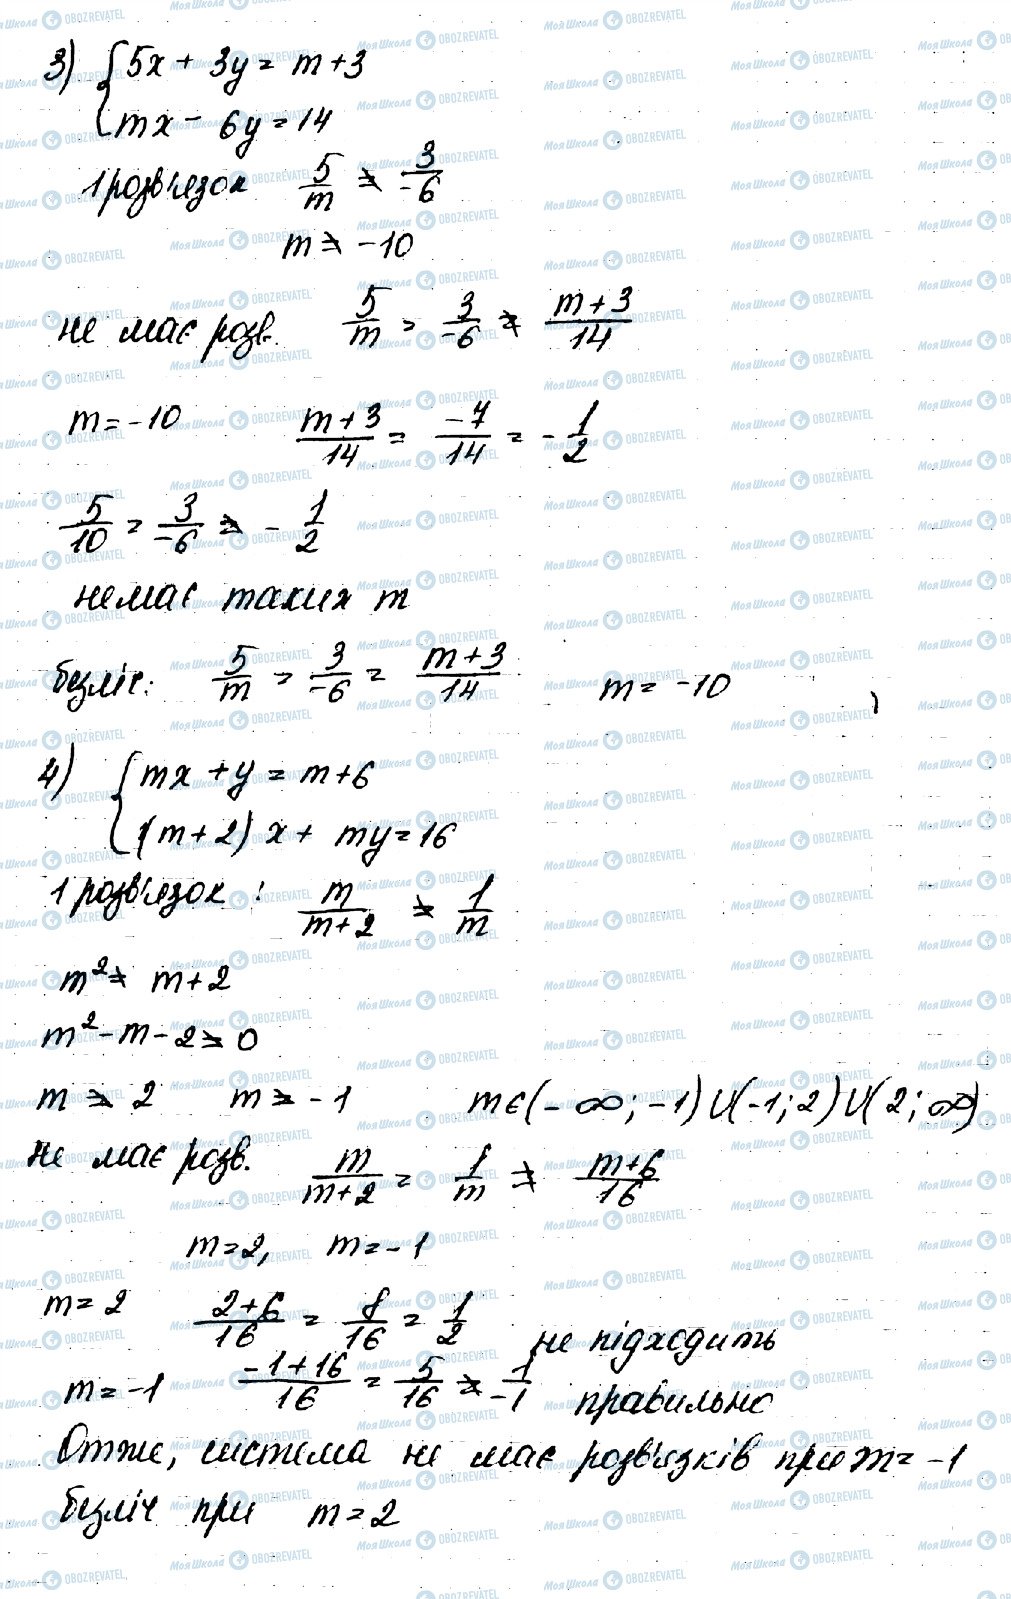 3) { 5x + 3y = m + 3
mx - 6y = 14
1 розв'язок 5/m ≠ 3/-6
m ≠ -10
не має розв. 5/m = 3/-6 ≠ (m+3)/14
m = -10 (m+3)/14 = -7/14 = -1/2
5/10 = 3/-6 ≠ -1/2
немає таких m
безліч: 5/m = 3/-6 = (m+3)/14 m = -10
4) { mx + y = m + 6
(m+2)x + my = 16
1 розв'язок: m/(m+2) ≠ 1/m
m² ≠ m + 2
m² - m - 2 ≠ 0
m ≠ 2 m ≠ -1 m є (-∞; -1) U (-1; 2) U (2; ∞)
Не має розв. m/(m+2) = 1/m ≠ (m+6)/16
m = 2, m = -1
m = 2 (2+6)/16 = 8/16 = 1/2 не підходить
m = -1 (-1+16)/16 = 5/16 ≠ 1/-1 правильно
Отже, система не має розв'язків при m = -1
безліч при m = 2